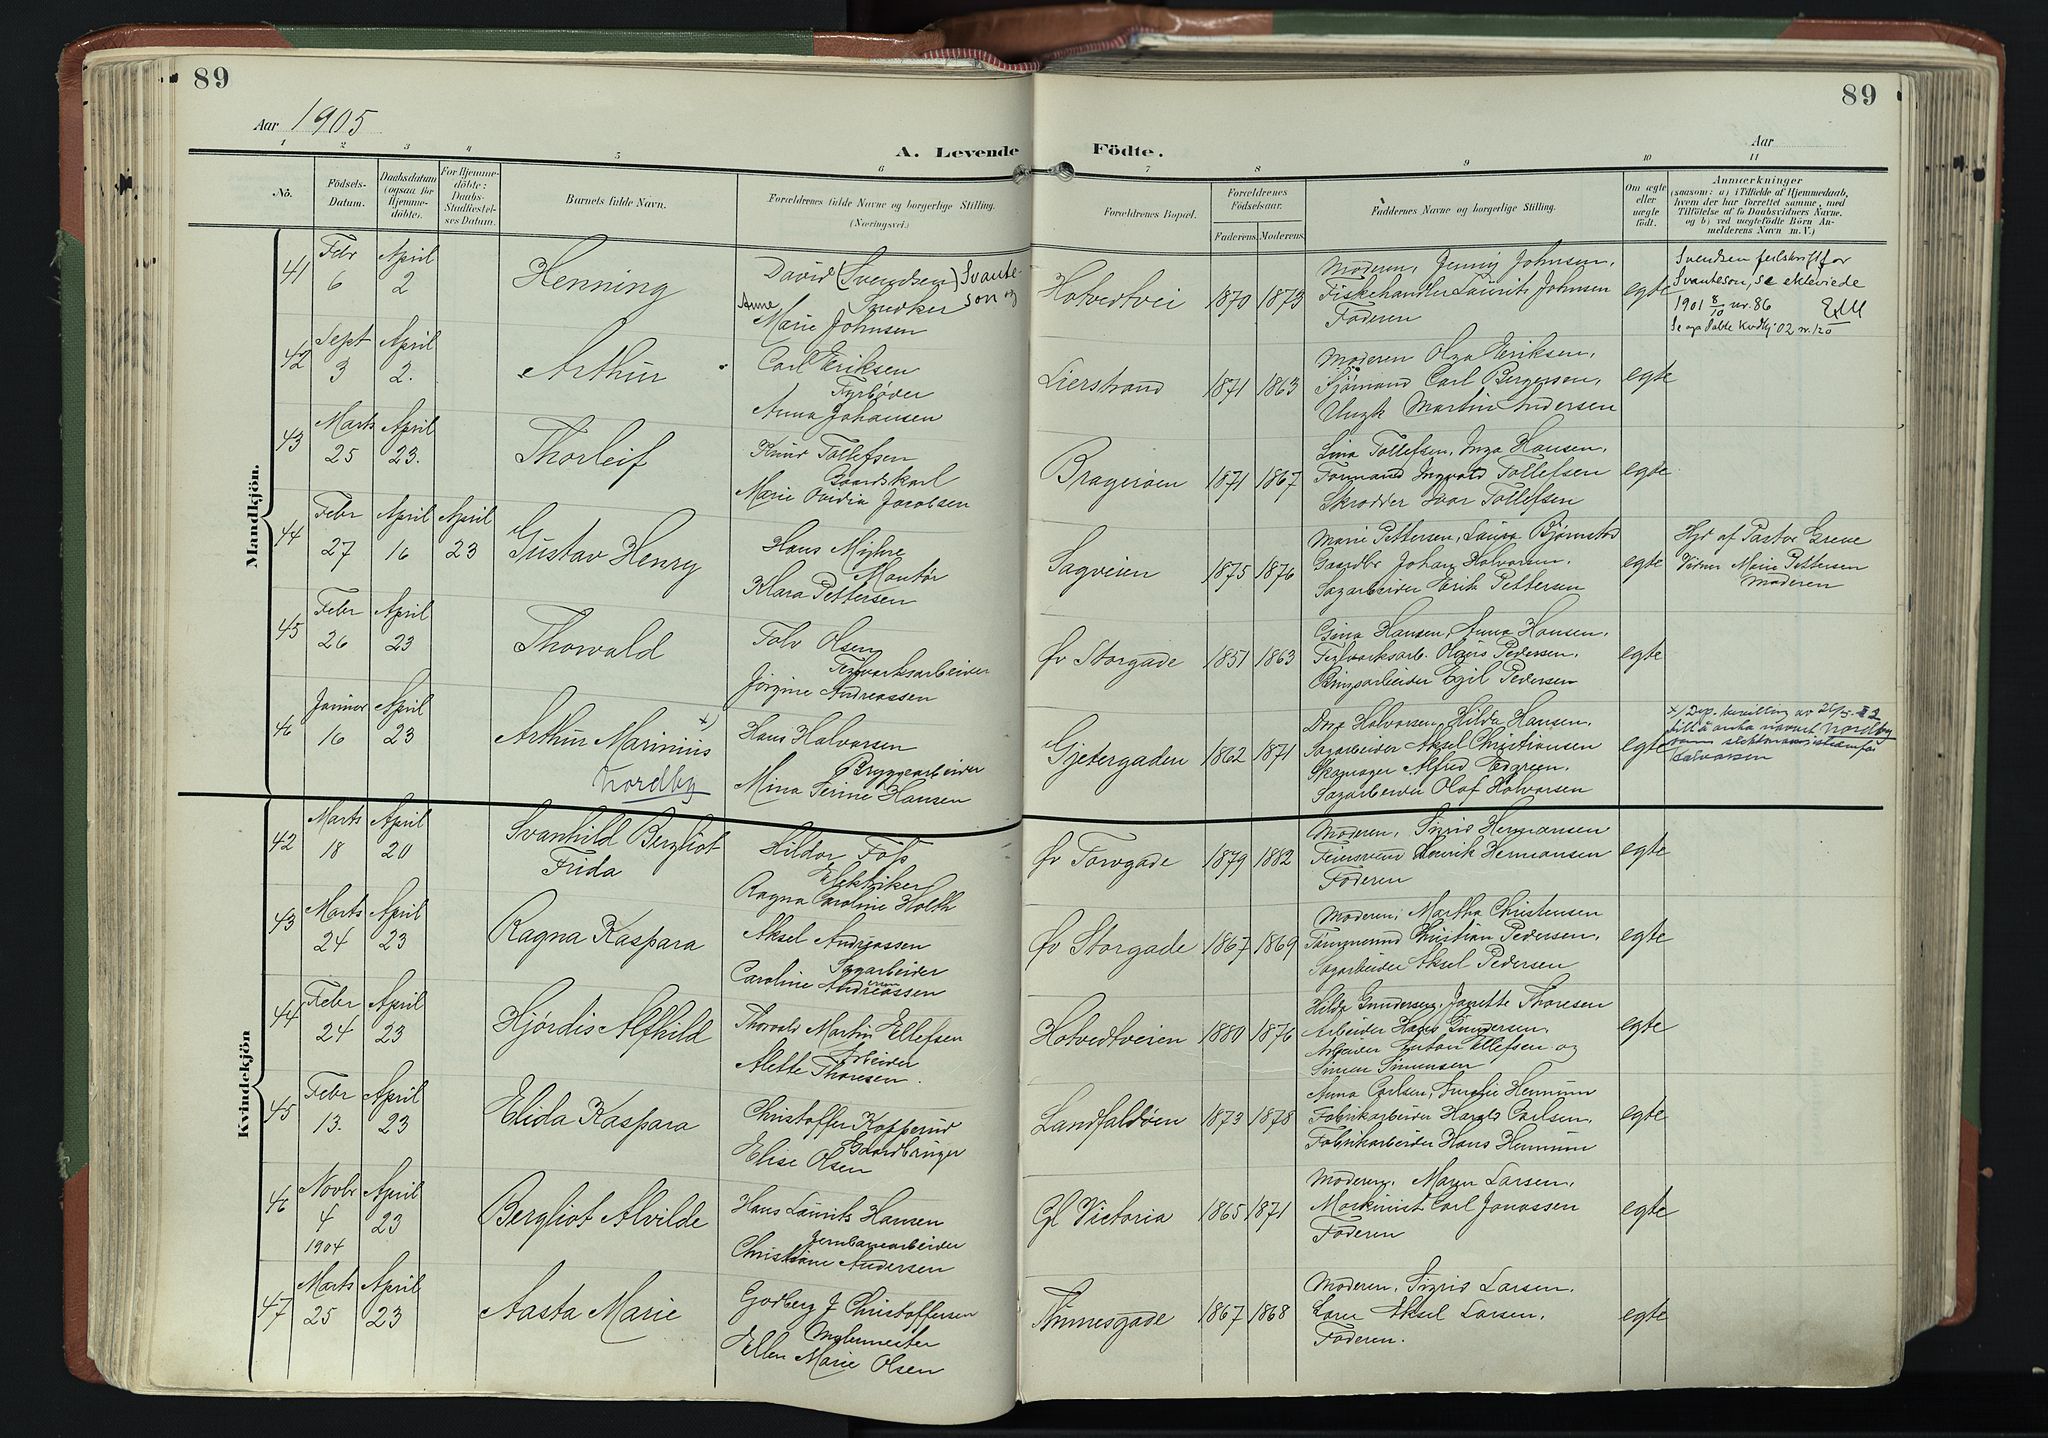 89
89
Aar 1905
Aar
A. Levende Födte.
1 2 3 4 5 6 7 8 9 10 11
No.
Födsels-
Datum.
Daabsdatum
(ogsaa for
Hjemme-
döbte).
For Hjemme-
döbte:
Daabs-
Stadfæstel-
ses Datum.
Barnets fulde Navn.
Forældrenes fulde Navne og borgerlige Stilling.
(Næringsvei.)
Forældrenes Bopæl.
Forældrenes
Födselsaar.
Faderens. Moderens.
Faddernes Navne og borgerlige Stilling.
Om ægte
eller
uægte
födt.
Anmærkninger
(saasom: a) i Tilfælde af Hjemmedaab,
hvem der har forrettet samme, med
Tilföielse af to Daabsvidners Navne,
og b) ved uægtefödte Börn An-
melderens Navn m. V.)
Mandkjön.
41
Febr
6
April
2
Henning
David (Svendsen) Svante-
Snedker son og
Anne
Marie Johnsen
Hotvedtvei
1870
1873
Moderen, Jenny Johnsen,
Fiskehandler Laurits Johnsen
Faderen
egte
Svendsen feilskrift for
Svanteson, se ekteviede
1901 8/10 nr. 86
42
Sept
3
April
2.
Arthur
Carl Eriksen
Fyrbøder
Anna Johansen
Lierstrand
1871
1863
Moderen Olga Eriksen,
Sjømand Carl Bergersen,
Ungk Martin Andersen
egte
43
Marts
25
April
23.
Thorleif
Knud Tollefsen
Gaardskarl
Marie Ovidia Jacobsen
Bragerøen
1871
1867
Lina Tollefsen, Inga Hansen,
Formand Ingvald Tollefsen
Skrædder Ivar Tollefsen
egte
44
Febr
27
April
16
April
23
Gustav Henry
Hans Myhre
Montør
Klara Pettersen
Sagveien
1875
1876
Marie Pettersen, Laura Bjørnstad
Gaardbr Johan Halvorsen,
Sagarbeider Erik Pettersen
egte
Hjd af Pastor Greve
Vidner Marie Pettersen
Moderen
45
Febr
26
April
23
Thorvald
Tolv Olsen
Teglværksarbeider
Jørgine Andreassen
Øv Storgade
1851
1863
Gina Hansen, Anna Hansen,
Teglværksarb. Olaus Pedersen,
Brugsarbeider Egil Pedersen
egte
46
Januar
16
April
23
Arthur Marinius x)
Nordby
Hans Halvorsen
Bryggearbeider
Mina Serine Hansen
Gjetergaden
1862
1871
Inga Halvorsen, Hilda Hansen,
Sagarbeider Aksel Christiansen
Skomager Alfred Edgren,
Sagarbeider Olaf Halvorsen
egte
x) Dep. bevilling av 26/5
til å anta navnet Nordby
som slektsnavn istedenfor
Halvorsen
Kvindekjön
42
Marts
18
April
20
Svanhild Bergliot
Frida
Hildor Foss
Elektriker
Ragna Caroline Holth
Øv Torvgade
1879
1882
Moderen, Sigrid Hermansen
Feiersvend Henrik Hermansen
Faderen
egte
43
Marts
24
April
23
Ragna Kaspara
Aksel Andreassen
Sagarbeider
Caroline Andreassen
Øv Storgade
1867
1869
Moderen, Martha Christensen
Tømmermand Christian Pedersen,
Sagarbeider Aksel Pedersen
egte
44
Febr
24
April
23
Hjørdis Alfhild
Thorvald Martin Ellefsen
Arbeider
Alette Thoresen.
Hotvedtveien
1880
1876
Hilda Gundersen, Janette Thoresen
Arbeider Hans Gundersen,
Arbeider Anton Ellefsen og
Simen Simensen
egte
45
Febr
13.
April
23
Elida Kaspara
Christoffer Kopperud
Gaardbruger
Elise Olsen
Landfaldøen
1873
1878
Anna Carlsen, Aurelie Hennum
Fabrikarbeider Harald Carlsen,
Fabrikarbeider Hans Hennum
egte
46
Novbr
4
1904
April
23
Bergliot Alvilde
Hans Laurits Hansen
Jernbanearbeider
Christiane Andersen
Gl Victoria
1865
1871
Moderen, Maren Larsen,
Maskinist Carl Jonassen
Faderen
egte
47
Marts
25
April
23
Aasta Marie
Godberg J Christoffersen
Malermester
Ellen Marie Olsen
Tinnesgade
1867
1868
Moderen, Sigrid Larsen,
Aksel Larsen,
Faderen.
egte